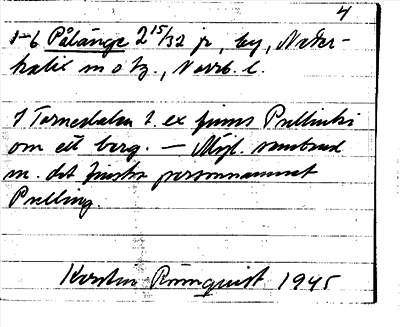 4
1-6 Palänge 2 15/32 jr, by, Neder-
kalix sn o tg., Norrb. l.
I Tornedalen t. ex finns Pullinki
om ett berg. — Möjl. samband
m. det finska personnamnet
Pulling.
Kerstin Rönnquist 1945